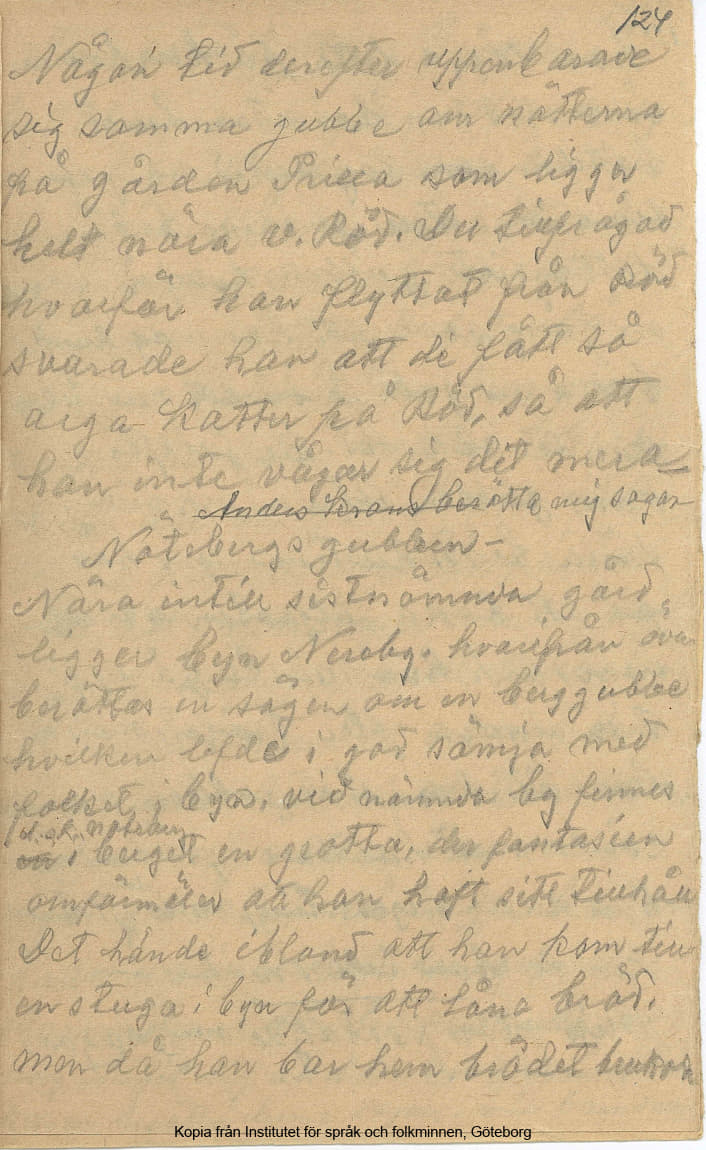 124
Någon tid derefter uppenbarade
sig samma gubbe om nätterna
på gården Pricca som ligger
helt nära v. Röd. Du tillfrågad
hvarför han flyttat från Röd
svarade han att de fått så
arga katter på Röd, så att
han inte vågar sig dit mera
Anders berätta mig sagan
Nötebergsgubben –
Nära intill sistnämnda gård
ligger byn Neroby. hvarifrån äve
berättas en sägen om en berggubbe
hvilken lefde i god sämja med
folket i byn. vid nämnda by finnes
d. s. k. Nöteberg
i berget en grotta, der fantasien
omförmäler att han haft sitt tillhåll
Det hände ibland att han kom till
en stuga i byn för att låna bröd.
men då han bar hem brödet brukade
Kopia från Institutet för språk och folkminnen, Göteborg